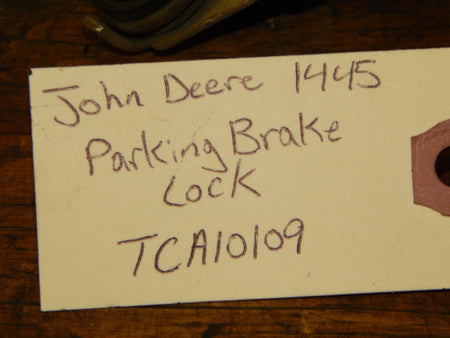 John Deere 1445
Parking Brake
Lock
TCA10109